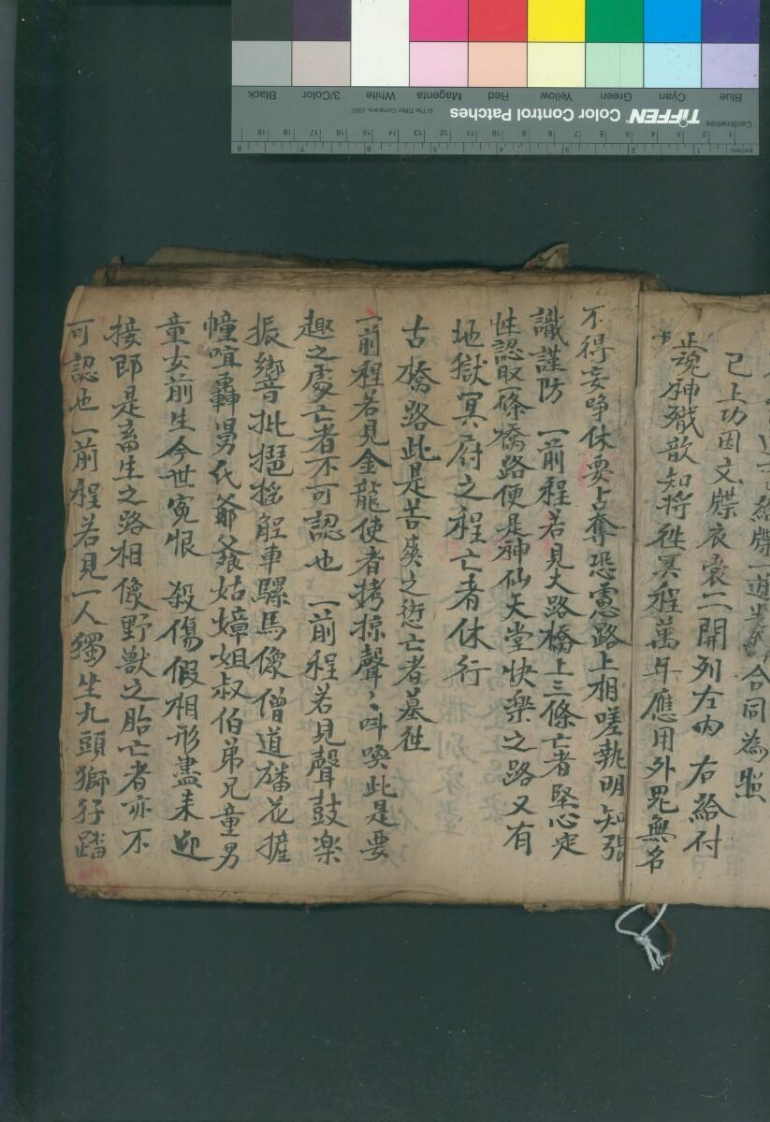 給牒一道 合同為照
已上功因文牒衣衾二開列左內 右給付
正魂神戩歆知將徃冥程萬年應用外鬼無名
不得妄爭休要占奪恐慮路上相嗟執明知張
識謹防 一前程若見大路橋上三條亡者堅心定
性認取條橋路便是神仙天堂快樂之路又有
地獄冥府之程亡者休行
古橋路此是苦 之 亡者莫徃
一前程若見金龍使者拷掠聲〻叫喚此是要
趣之處亡者不可認也 一前程若見聲鼓樂
振響 搖 車騾馬像僧道旛花擁
幢喧轟舅氏爺爹姑嫜姐叔伯弟兄童男
童女前生今世冤恨 殺傷假相形盡来迎
接即是畜生之路相像野獸之胎亡者亦不
可認也一前程若見一人獨坐九頭獅子踏
TIFFEN Color Control Patches
© The Tiffen Company, 2007
Centimetres
Inches
Blue Cyan Green Yellow Red Magenta White 3/Color Black